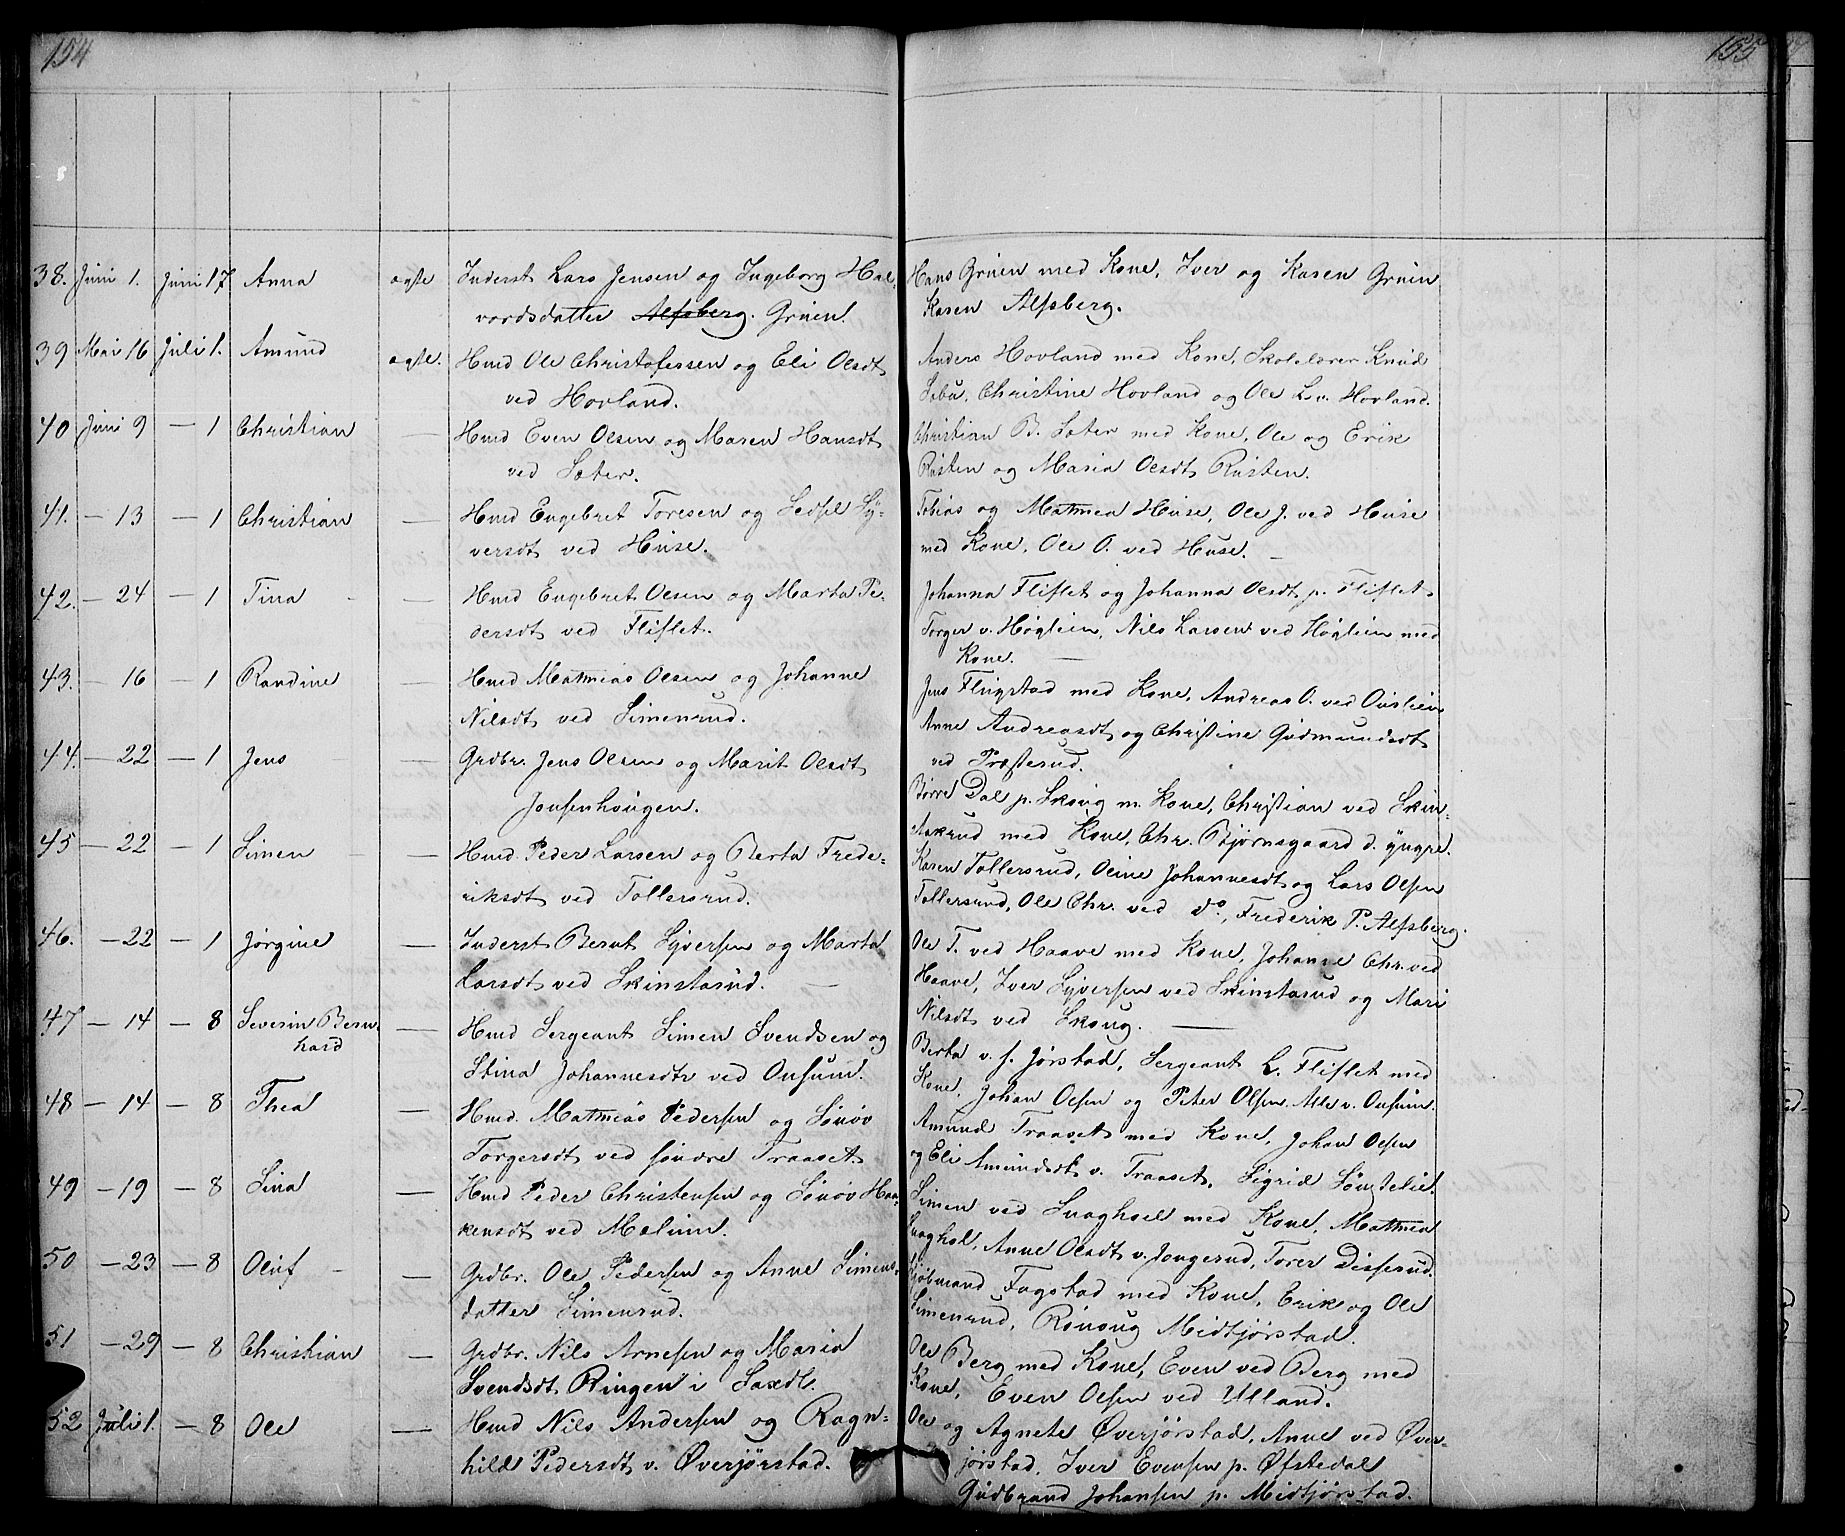 154
38. Juni 1. Juni 17 Anna ægte Inderst Lars Jensen og Ingeborg Hal-
vordsdatter Alfsberg. Gruen.
39 Mai 16 Juli 1. Amund ægte. Hmd Ole Christofersen og Eli Olsdt
ved Hovland.
40 Juni 9 — 1 Christian — Hmd Even Olsen og Maren Hansdt
ved Sæter.
41. — 13 — 1 Christian — Hmd Engebret Toresen og Sedsel Sy-
versdt ved Huse.
42. — 24 — 1 Tina — Hmd Engebret Olsen og Marta Pe-
dersdt ved Fliflet.
43. — 16 — 1 Randine — Hmd Mathias Olsen og Johanne
Nilsdt ved Simenrud.
44. — 22 — 1 Jens — Grdbr. Jens Olsen og Marit Olsdt
Jonsenhougen.
45 — 22 — 1 Simen — Hmd. Peder Larsen og Berta Frede-
riksdt ved Tollersrud.
46. — 22 — 1 Jørgine — Inderst Bernt Syversen og Marta
Larsdt ved Skinstasud. —
47 — 14 — 8 Severin Bern-
hard — Hmd Sergeant Simen Svendsen og
Stina Johannesdtr ved Onsum.
48 — 14 — 8 Thea — Hmd. Mathias Pedersen og Sønøv
Torgersdt ved søndre Traaset.
49 — 19 — 8 Sina — Hmd Peder Christensen og Sønøv Haa-
kensdt ved Melum.
50 — 23 — 8 Oluf — Grdbr. Ole Pedersen og Anne Simens-
datter Simenrud.
51 — 29 — 8 Christian — Grdbr. Nils Arnesen og Maria
Svendsdt Ringen i Saxdl.
52 Juli 1. — 8 Ole — Hmd Nils Andersen og Ragn-
hild Pedersdt v. Øverjørstad.
155
Hans Gruen med Kone, Iver og Karen Gruen
Karen Alfsberg.
Anders Hovland med Kone, Skolelærer Knud
Sebu, Christine Hovland og Ole L. v. Hovland.
Christian B. Sæter med Kone, Ole og Erik
Rusten og Maria Olsdt Rusten.
Tobias og Mathea Huse, Ole J. ved Huse
med Kone, Ole O. ved Huse. —
Johanna Fliflet og Johanna Olsdt p. Fliflet
Torger v. Høglien, Nils Larsen ved Høglien med
Kone. —
Jens Flugstad med Kone, Andreas O. ved Ouslien
Anne Andreasdt og Christine Gudmundsdt
ved Præsterud.
Børre Dal p. Skoug m. Kone, Christian ved Skin-
med Kone, Chr. Bjørnsgaard d. yngre.
Karen Tollersrud, Oline Johannesdt og Lars Olsen
Tollersrud, Ole Chr. ved do., Frederik P. Alfsberg.
Ole T. ved Haave med Kone, Johanne Chr. ved
Haave, Iver Syversen ved Skinstasud og Mari
Nilsdt ved Skoug. —
Berta v. s. Jørstad, Sergeant L. Fliflet med
Kone, Johan Olsen og Peter Olsen, Alle v. Onsum.
Amund Traaset med Kone, Johan Olsen
og Eli Amundsdt v. Traaset, Sigrid
Simen ved Snaghol med Kone, Mathea
Snaghol, Anne Olsdt v. Jongerud, Torer Disserud.
Kjøbmand Fagstad med Kone, Erik og Ole
Simenrud, Rønoug Midtjørstad.
Ole Berg med Kone, Even ved Berg med
Kone, Even Olsen ved Ulland.
Ole og Agnete Øverjørstad, Anne ved Øver-
jørstad, Iver Evensen p. Øfstedal
Gudbrand Johansen p. Midtjørstad.